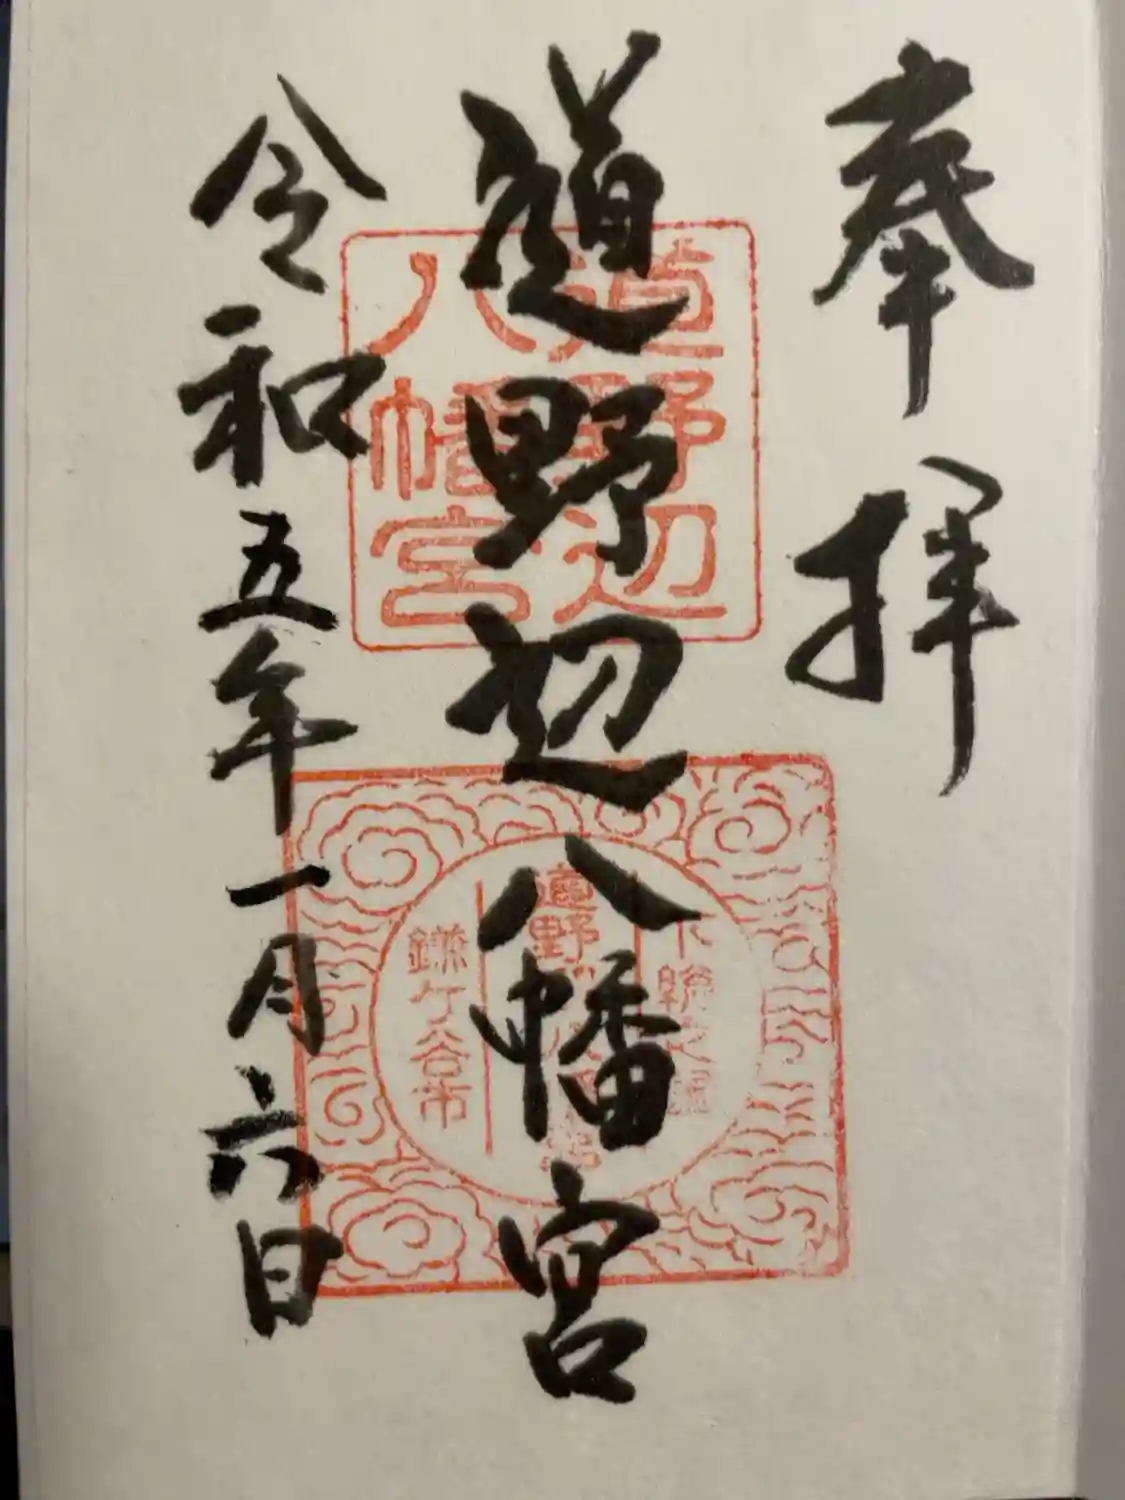 奉拝
道野辺八幡宮
令和五年一月六日
道野辺
八幡宮
下総之国
鎌ケ谷市